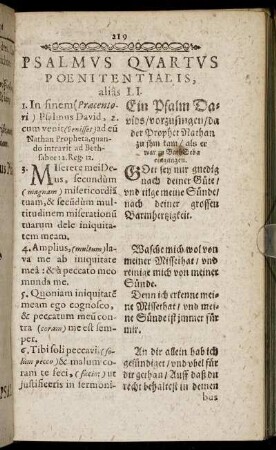 219
PSALMVS QVARTVS
POENITENTIALIS,
aliàs LI.
1. In finem (Praecento-
ri) Psalmus David, 2.
cum venit (venisset) ad eũ
Nathan Propheta, quan-
do intravit ad Beth-
sabee 2. Reg. 12.
3. Miserere mei De-
us, secundùm
(magnam) misericordiã
tuam, & secũdùm mul-
titudinem miserationũ
tuarum dele iniquita-
tem meam.
4. Ampliùs, (multùm) la-
va me ab iniquitate
meâ: & à peccato meo
munda me.
5. Quoniam iniquitatẽ
meam ego cognosco,
& peccatum meũ con-
tra (coram) me est sem-
per.
6. Tibi soli peccavi, (so-
lum pecco) & malum co-
ram te feci, (facim) ut
justificeris in sermoni-
Ein Psalm Da-
vids / vorzusingen / da
der Prophet Nathan
zu jhm kam / als er
war zu BathSeba
eingangen.
GOtt sey mir gnedig
nach deiner Güte /
vnd tilge meine Sünde
nach deiner grossen
Barmhertzigkeit.
Wasche mich wol von
meiner Missethat / vnd
reinige mich von meiner
Sünde.
Denn ich erkenne mei-
ne Missethat / vnd mei-
ne Sünde ist jmmer für
mir.
An dir allein hab ich
gesündiget / vnd vbel für
dir gethan / Auff daß du
recht behaltest in deinen